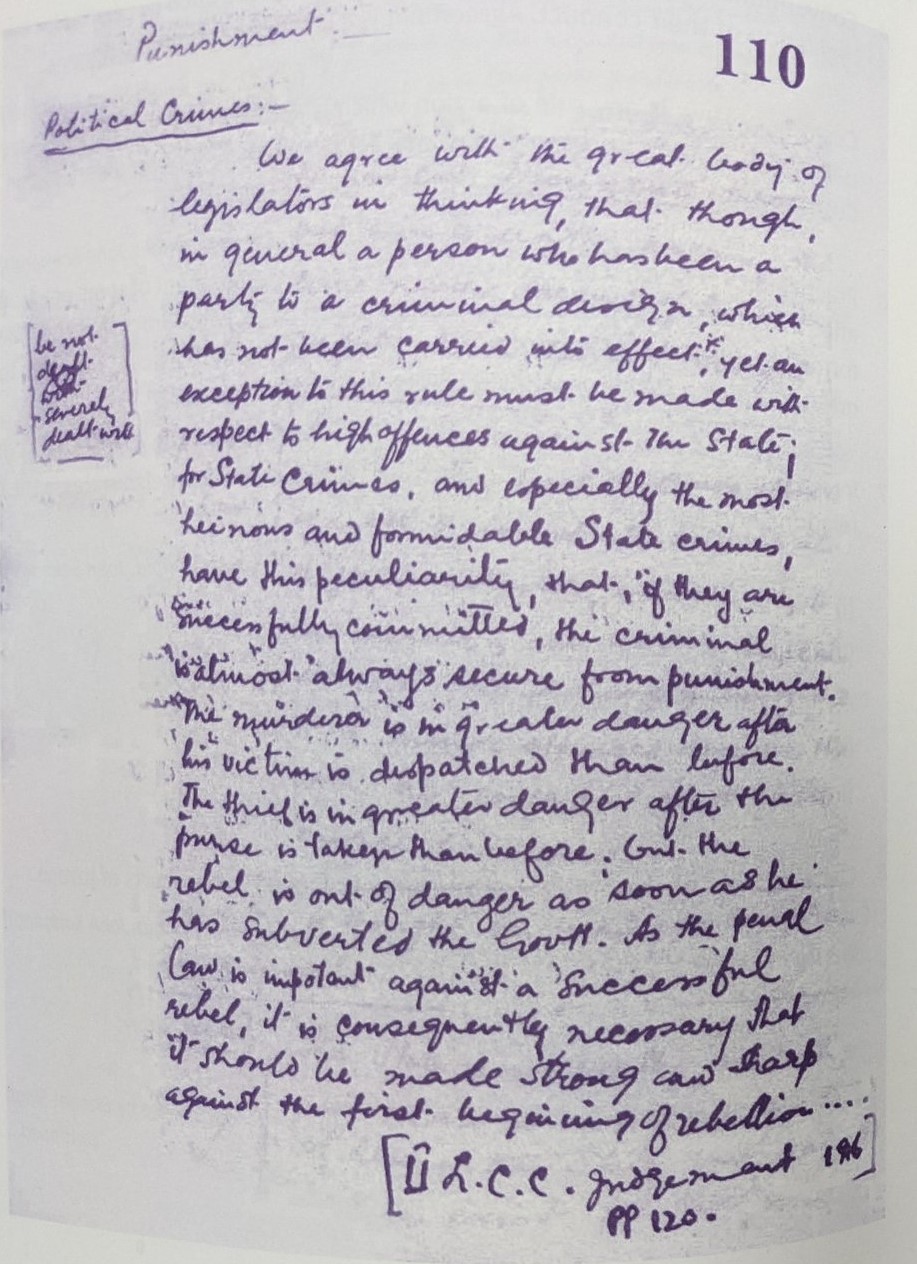 Punishment :—
110
Political Crimes:—
We agree with the great body of
legislators in thinking, that though,
in general a person who has been a
party to a criminal design, which
has not been carried into effect*, yet an
exception to this rule must be made with
respect to high offences against the State;
for State Crimes, and especially the most
heinous and formidable State crimes,
have this peculiarity, that, if they are
successfully committed, the criminal
is almost always secure from punishment.
The murderer is in greater danger after
his victim is dispatched than before.
The thief is in greater danger after the
purse is taken than before. But the
rebel is out of danger as soon as he
has subverted the Govtt. As the penal
Law is impotant against a successful
rebel, it is consequently necessary that
it should be made strong and sharp
against the first begining of rebellion ....
[II L.C.C. Judgement 1916]
PP 120.
[be not
dealt
with
severely
dealt with]